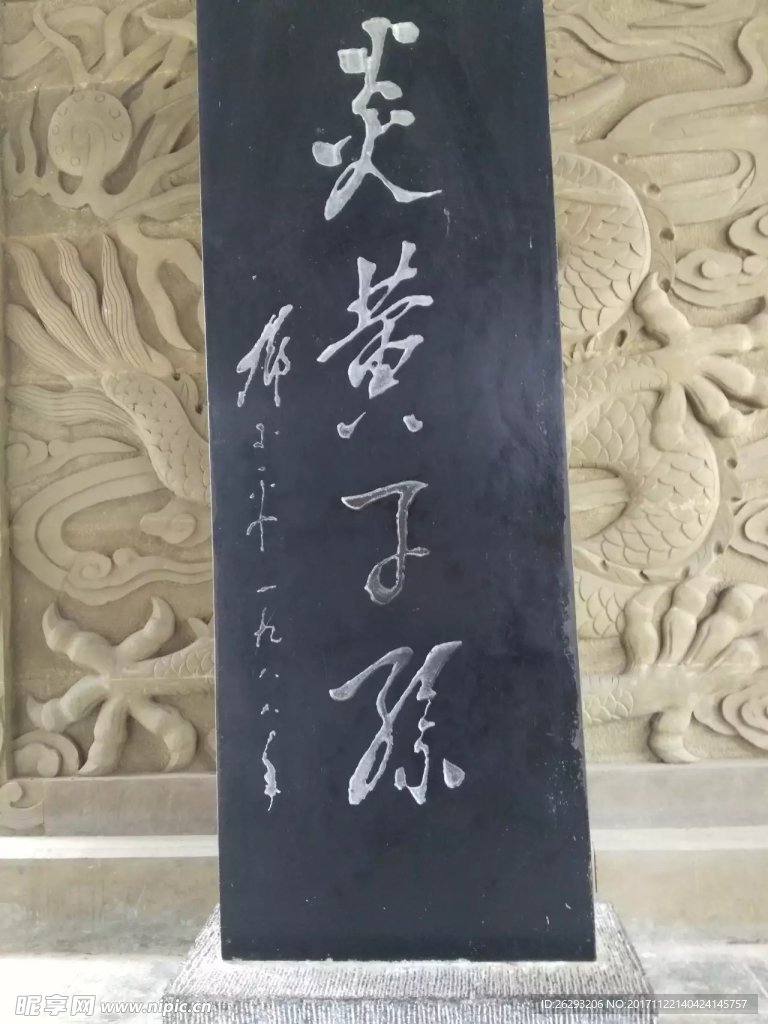 炎黄子孫
一九八八年
昵享网 www.nipic.cn
ID:26293206 NO:20171122140424145757